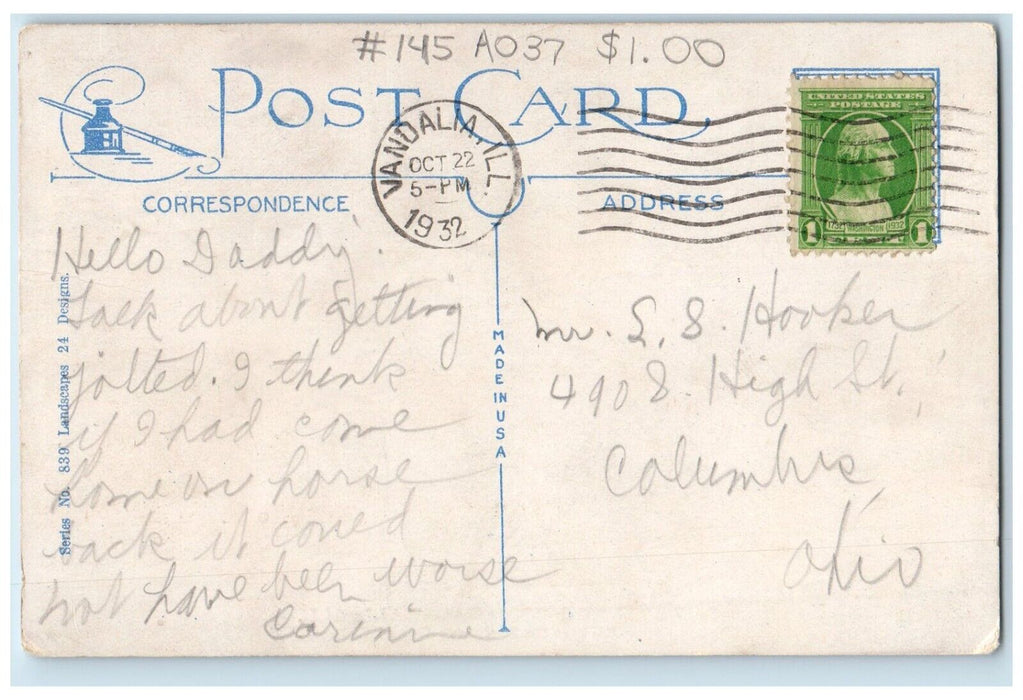 #145 A037 $1.00
POST CARD
VANDALIA, ILL.
OCT 22
5-PM
1932
UNITED STATES
POSTAGE
1 1732 WASHINGTON 1932 1
CORRESPONDENCE
ADDRESS
Hello Daddy.
Talk about getting
jolted. I think
if I had come
home on horse
back it could
not have been worse
Corinne
Series No. 839 Landscapes 24 Designs.
MADE IN USA
Mr. S. S. Hooker
490 E. High St.
Columbus
Ohio